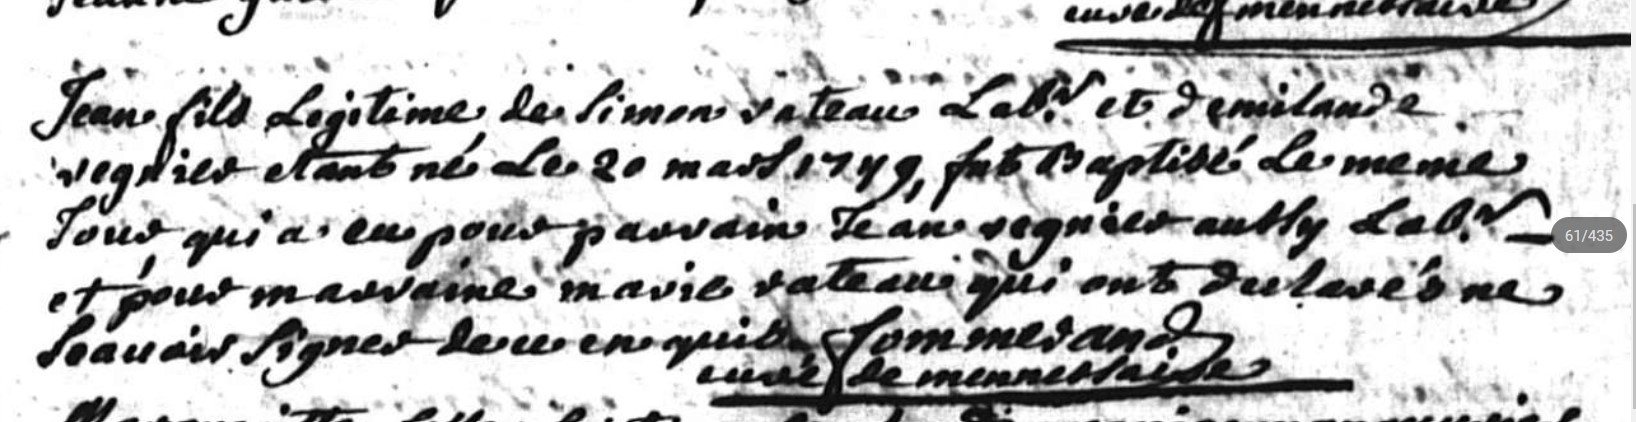 curé de mennessaire
Jean fils Legitime de Simon rateau Lab.r et d'emilande
regnier etant né Le 20 mars 1749, fut Baptisé Le meme
Jour qui a eu pour parrain Jean regnier aussy Lab.r
et pour marraine marie rateau qui ont declarés ne
Scauoir Signer de ce enquis Commerand
curé de mennessaire
61/435